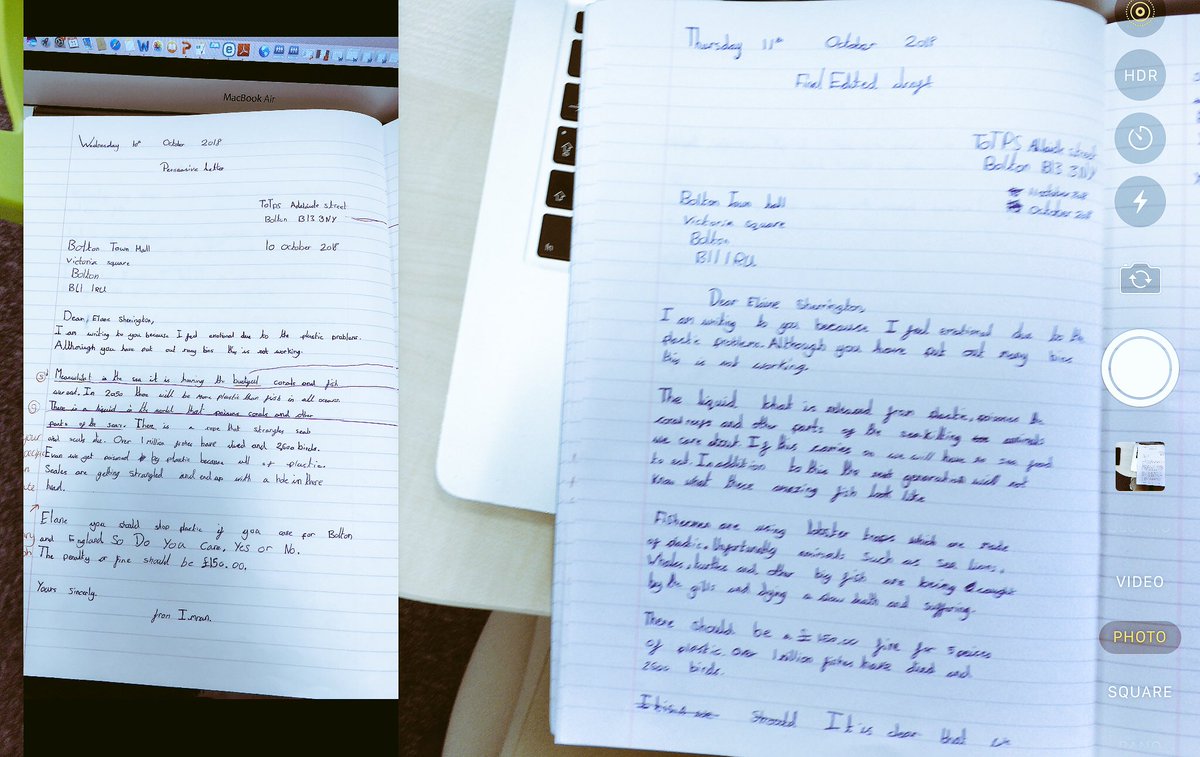 MacBook Air
Wednesday 10th October 2018
Persuasive letter
ToTPS Adelaide street
Bolton Bl3 3NY
Bolton Town Hall 10 October 2018
Victoria square
Bolton
BL1 1RU
Dear, Elaine Sherrington,
I am writing to you because I feel emotional due to the plastic problems.
Although you have out out many bins this is not working.
Meanwhilst in the sea it is harming the corals and fish
In 2050 there will be more plastic than fish in all oceans.
There is a liquid in the that poisons corals and other
parts of the sea. There is a rope that strangles seal
and scale die. Over 1 million fishes have died and 2500 birds.
Even we get poisned by plastic because of plastic.
Seales are getting strangled and end up with a hole in there
hed.
Elane you should stop plastic if you care for Bolton
and England SO DO YOU CARE, YES OR NO.
The penalty or fine should be £150.00.
Yours sincerly,
from Imran.
Thursday 11th October 2018
Final Edited draft
ToTPS Adelaide street
Bolton Bl3 3NY
11 october 2018
October 2018
Bolton Town hall
Victoria square
Bolton
Bl1 1RU
Dear Elaine Sherrington,
I am writing to you because I feel emotional due to the
plastic problems. Although you have put out many bins
this is not working.
The liquid that is released from plastic, poisones the
coral reefs and other parts of the sea killing animals
we care about If this carries on we will have no sea food
to eat. In addition to this the next generation will not
know what these amazing fish look like
Fishermen are using lobster traps which are made
of plastic. Unfortunatly animals such as sea lions,
Whales, turtles and other big fish are being caught
by the gills and dying a slow death and suffering.
There should be a £150.00 fine for 5 peices
of plastic. Over 1 million fishes have died and
2500 birds.
It is clear that we
HDR
VIDEO
PHOTO
SQUARE
PANO